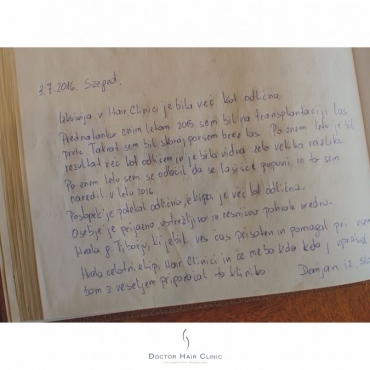 3.7.2016. Szeged.
Izkušnja v Hair Clinici je bila več kot odlična.
Pred natanko enim letom 2015 sem bil na transplantaciji las
prvič. Takrat sem bil skoraj povsem brez las. Po enem letu je bil
rezultat več kot odličen in je bila vidna zelo velika razlika
Po enem letu sem se odločil da se lasišče popolni, in to sem
naredil v letu 2016.
Postopek je potekal odlično, ekipa je več kot odlična.
Osebje je prijazno, ustrežljivo in resnično pohvale vredno.
Hvala g. Tiborju, ki je bil ves čas prisoten in pomagal pri vsem
Hvala celotni ekipi Hair Clinici in če me bo kdo kdaj vprašal
bom z veseljem priporočal to kliniko Damjan iz
DOCTOR HAIR CLINIC